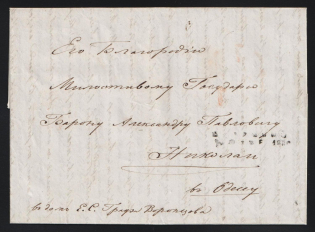 Его Благородію
Милостивому Государю
Барону Александру Павловичу
Николаи
въ Одессу
въ домъ Е. С. Графа Воронцова